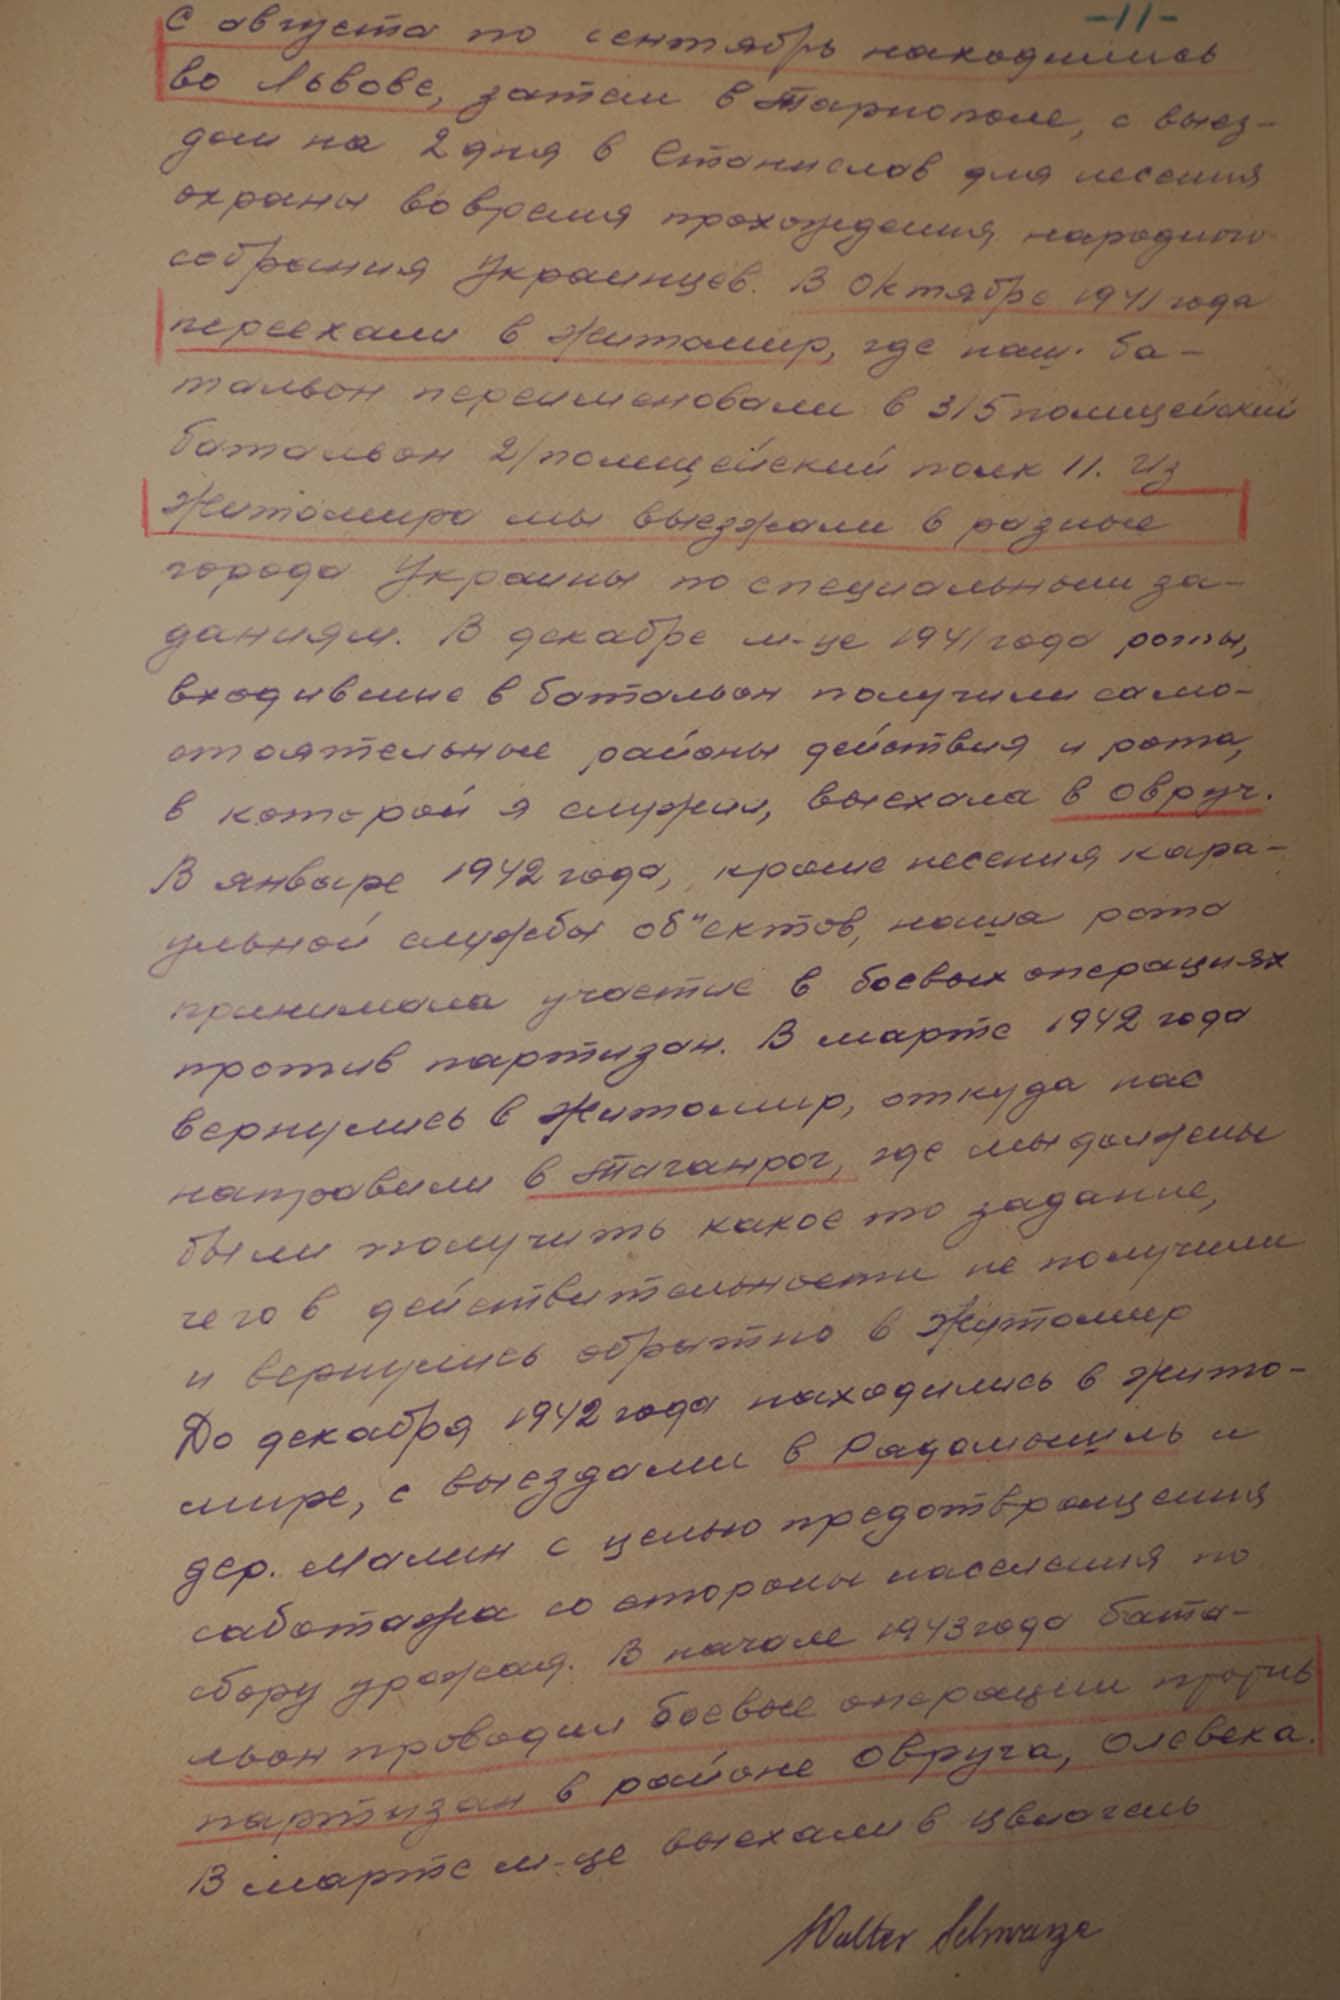 -11-
С августа по сентябрь находились
во Львове, затем в Тарнополе, с выез-
дом на 2 дня в Станислав для несения
охраны во время прохождения народного
собрания Украинцев. В Октябре 1941 года
переехали в Житомир, где наш ба-
тальон переименовали в 315 полицейский
батальон 2/полицейский полк 11. Из
Житомира мы выезжали в разные
города Украины по специальным за-
даниям. В декабре м-це 1941 года роты,
входившие в батальон получили само-
стоятельные районы действия и рота,
в которой я служил, выехала в Овруч.
В январе 1942 года, кроме несения кара-
ульной службы об"ектов, наша рота
принимала участие в боевых операциях
против партизан. В марте 1942 года
вернулись в Житомир, откуда нас
направили в Таганрог, где мы должены
были получить какое то задание,
чего в действительности не получили
и вернулись обратно в Житомир
До декабря 1942 года находились в Жито-
мире, с выездами в Радомышль и
дер. Малин с целью предотвращения
саботажа со стороны населения по
сбору урожая. В начале 1943 года бата-
льон проводил боевые операции против
партизан в районе Овруча, Олевска.
В марте м-це выехали в Цвиагель
Walter Schwarze